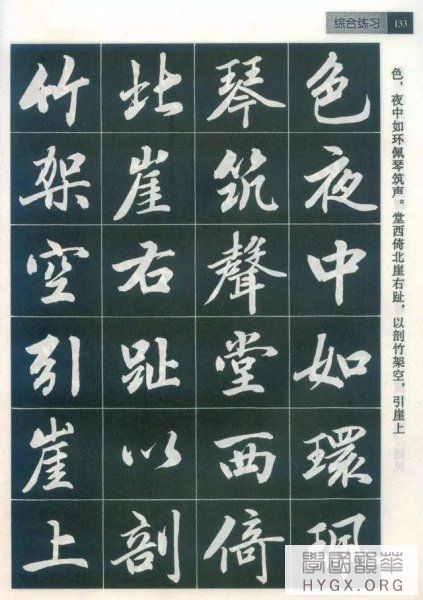 综合练习 133
色，夜中如环佩琴筑声。堂西倚北崖右趾，以剖竹架空，引崖上
色夜中如環珮
琴筑聲堂西倚
北崖右趾以剖
竹架空引崖上
學國韻華
HYGX.ORG